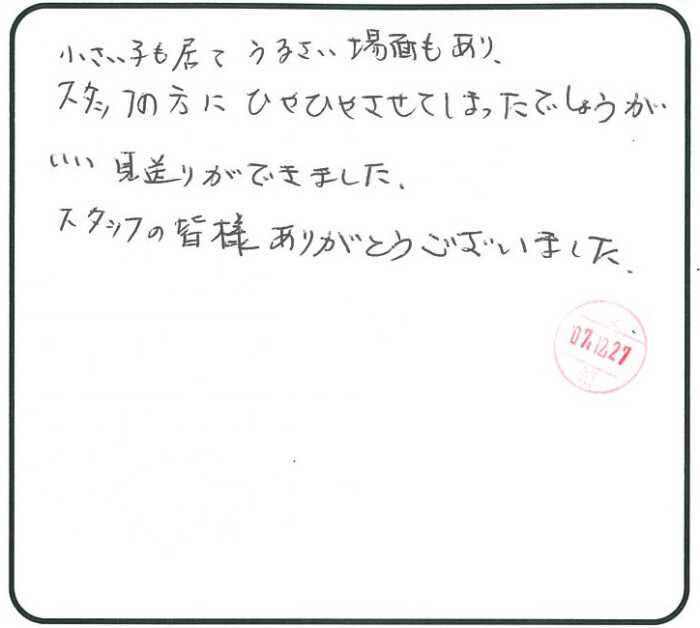 小さい子も居て うるさい場面もあり、
スタッフの方に ひやひやさせてしまったでしょうが
いい 見送りができました。
スタッフの皆様 ありがとうございました。
'07.12.27